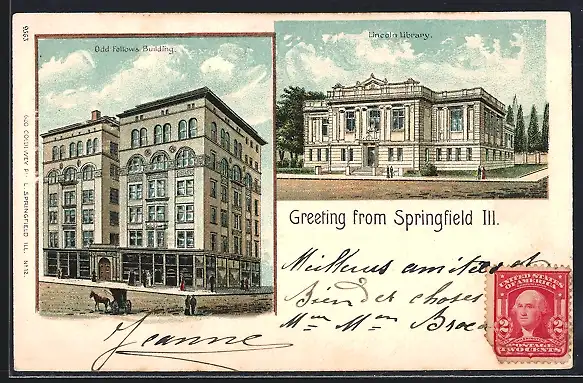 9363
Odd Fellows Building.
Lincoln Library.
Greeting from Springfield Ill.
Meilleures amitiés et
Bien des choses
Mme Mme
Jeanne
UNITED STATES
OF AMERICA
2 2
POSTAGE
TWO CENTS
SPRINGFIELD ILL. No 12.